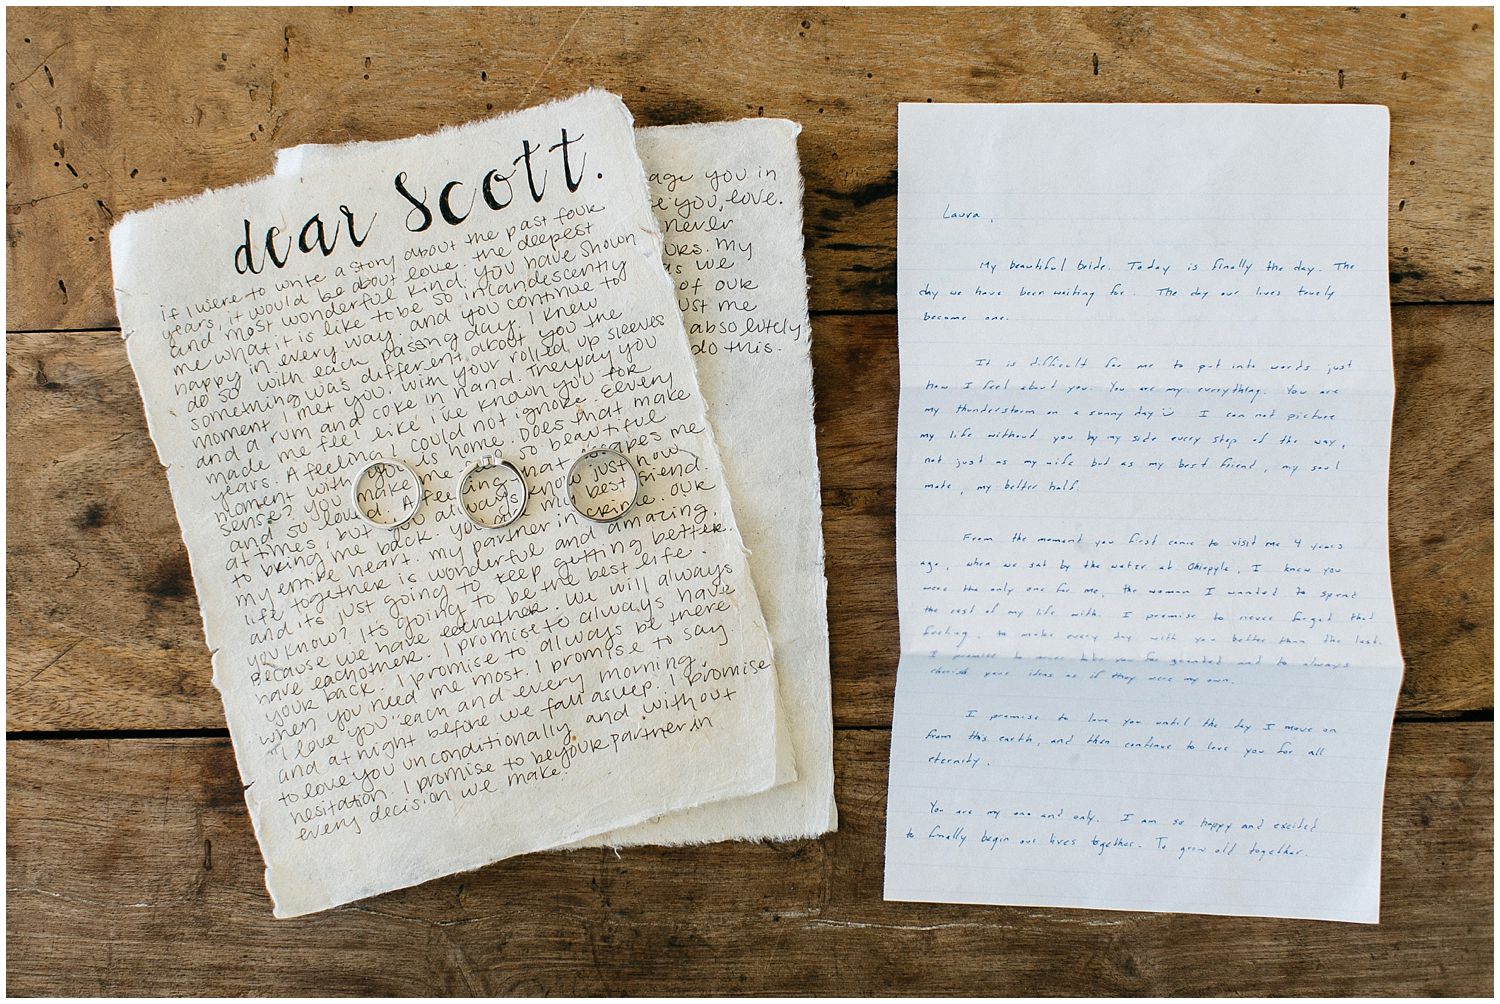 dear Scott.
if I were to write a story about the past four
years, it would be about love. the deepest
and most wonderful kind. you have shown
me what it is like to be so incandescently
happy in every way, and you continue to
do so with each passing day. I knew
something was different about you the
moment I met you. With your rolled up sleeves
and a rum and coke in hand. The way you
made me feel like I've known you for
years. A feeling I could not ignore. Every
moment with you is home. Does that make
sense? You make me feel so beautiful
and so loved. A feeling that escapes me
at times, but you always know just how
to bring me back. You are my best friend.
my entire heart. my partner in crime. our
life together is wonderful and amazing,
and it's just going to keep getting better.
you know? It's going to be the best life.
Because we have eachother. We will always
have eachother. I promise to always have
your back. I promise to always be there
when you need me most. I promise to say
"I love you" each and every morning,
and at night before we fall asleep. I promise
to love you unconditionally and without
hesitation. I promise to be your partner in
every decision we make.
age you in
you, love.
never
. My
as we
of our
just me
absolutely
do this.
Laura,
My beautiful bride. Today is finally the day. The
day we have been waiting for. The day our lives truely
become one.
It is difficult for me to put into words just
how I feel about you. You are my everything. You are
my thunderstorm on a sunny day☺ I can not picture
my life without you by my side every step of the way,
not just as my wife but as my best friend, my soul
mate, my better half.
From the moment you first came to visit me 4 years
ago, when we sat by the water at Ohiopyle, I knew you
were the only one for me, the woman I wanted to spend
the rest of my life with. I promise to never forget that
feeling, to make every day with you better than the last.
I promise to never take you for granted and to always
cherish your ideas as if they were my own.
I promise to love you until the day I move on
from this earth, and then continue to love you for all
eternity.
You are my one and only. I am so happy and excited
to finally begin our lives together. To grow old together.